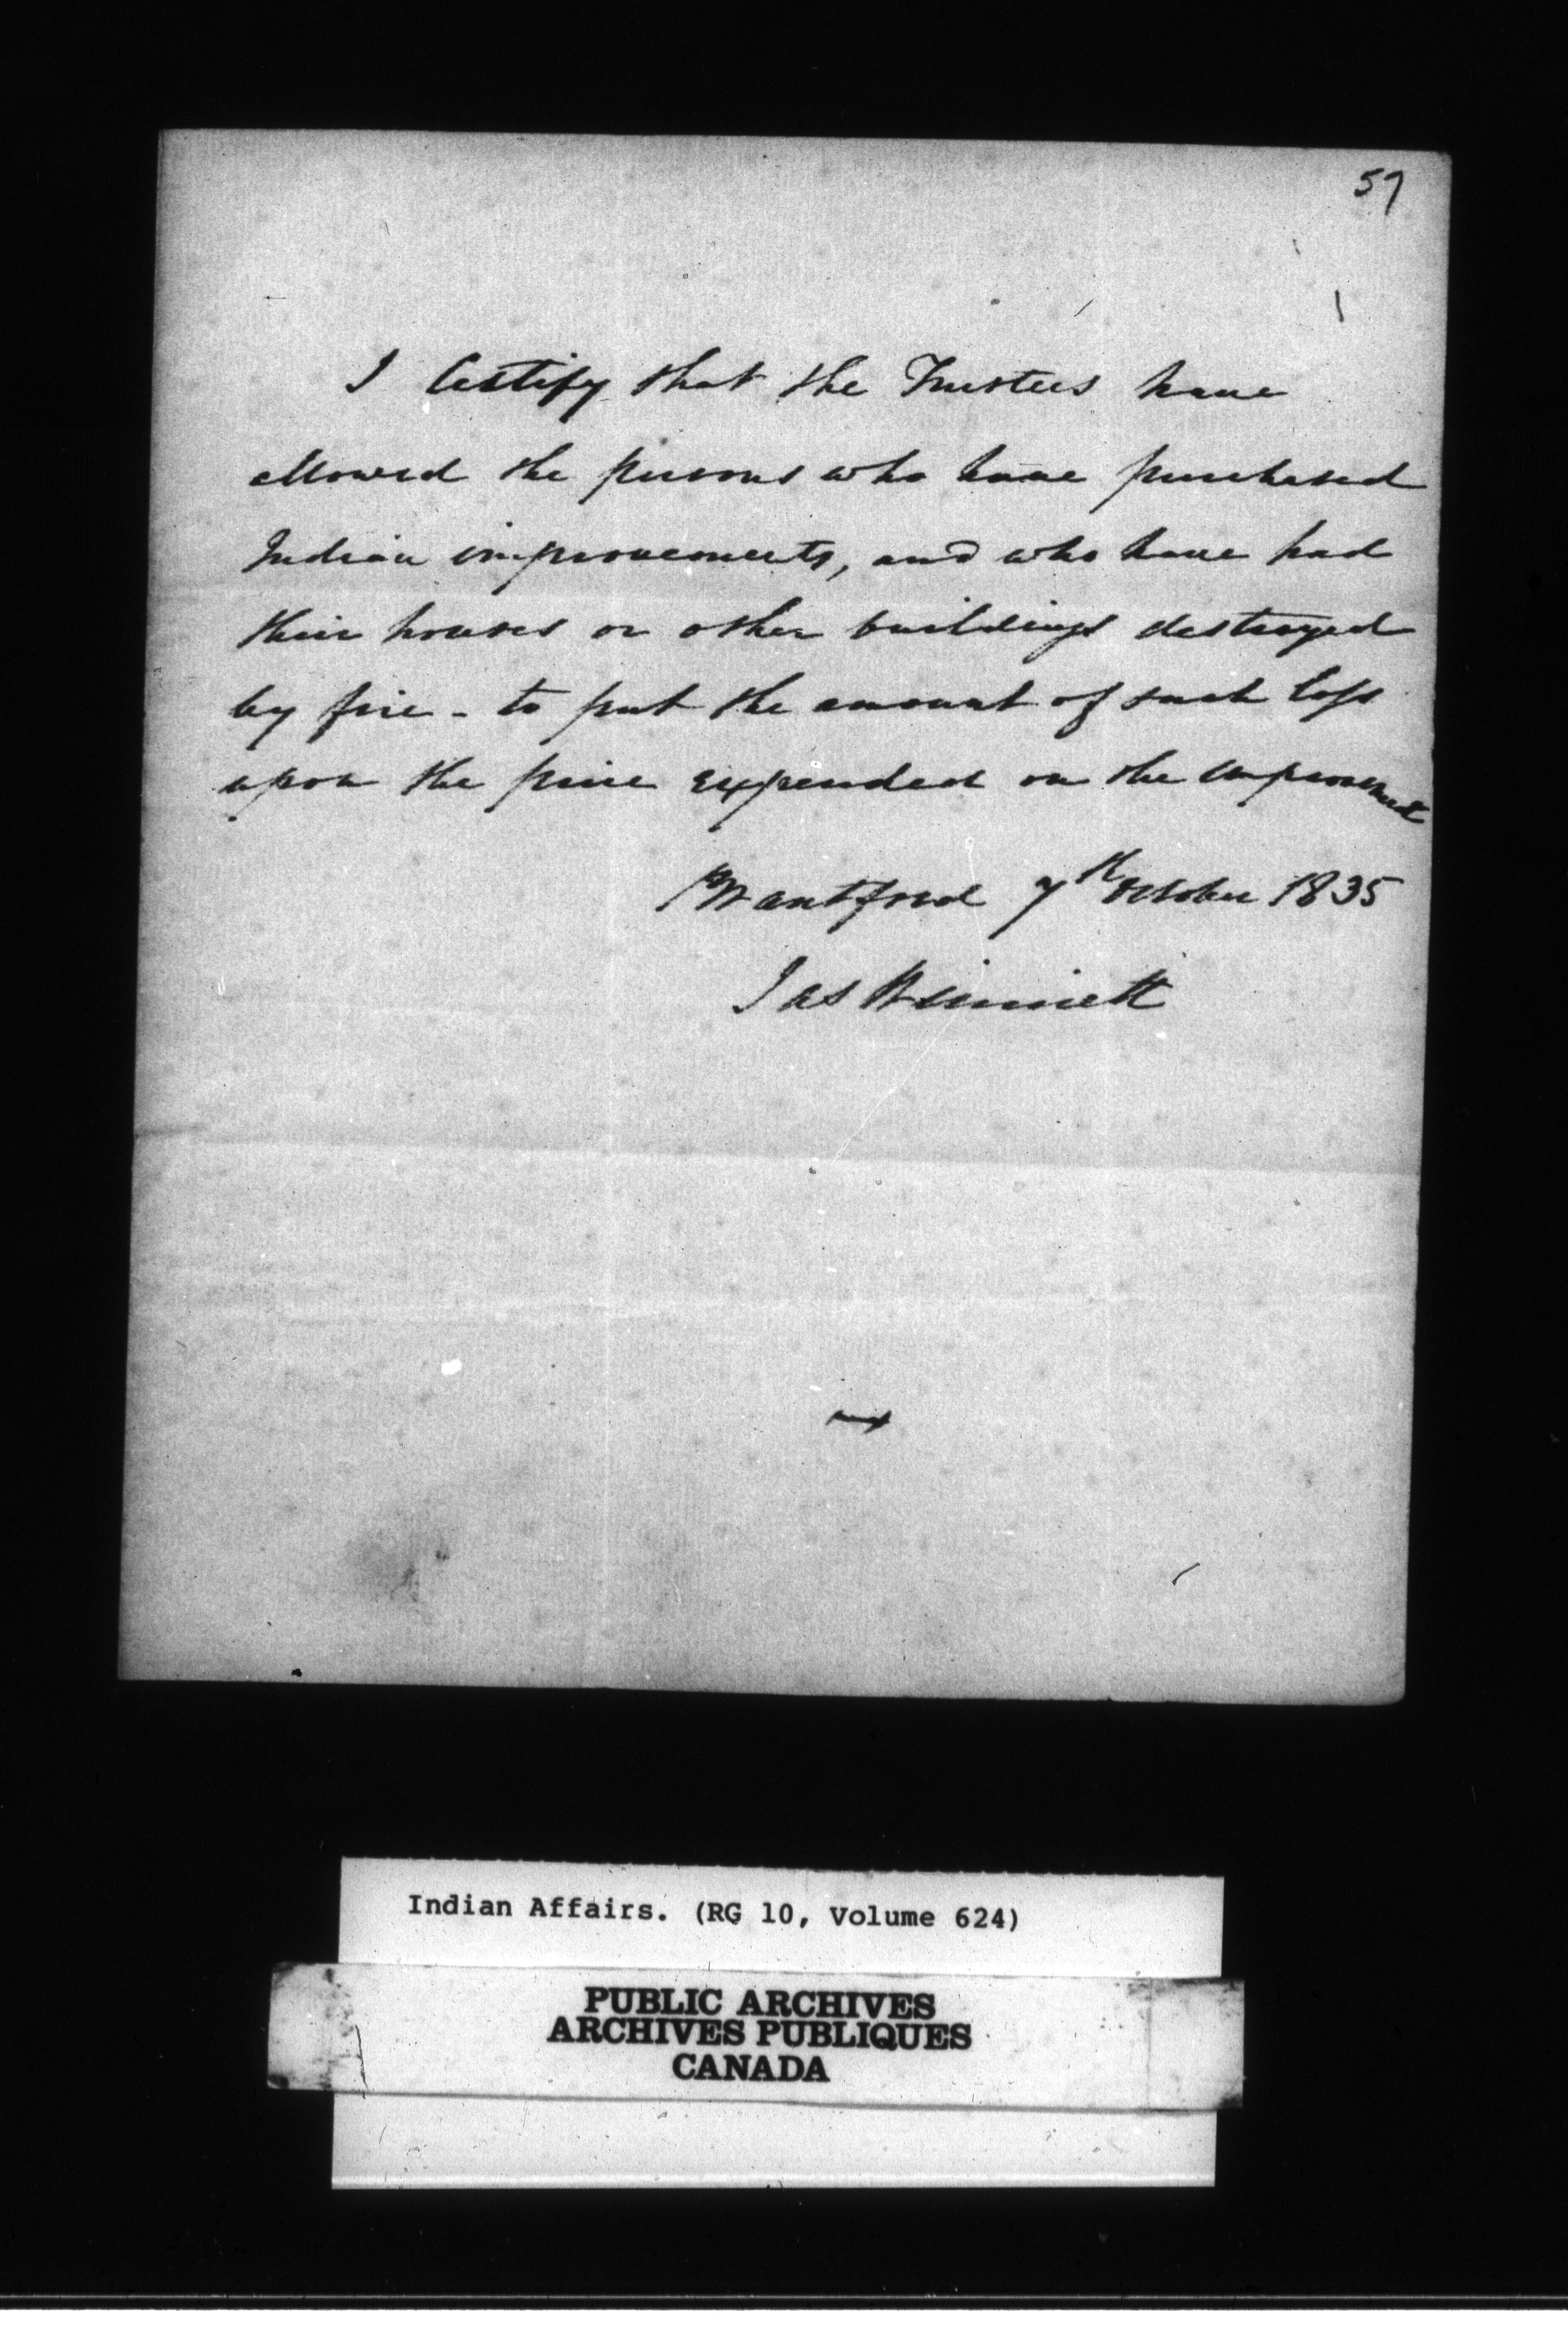 57
I Certify that the Trustees have
allowed the persons who have purchased
Indian improvements, and who have had
their houses or other buildings destroyed
by fire - to put the amount of such loss
upon the price expended on the improvement
Brantford 7th October 1835
Jas Winniett
Indian Affairs. (RG 10, Volume 624)
PUBLIC ARCHIVES
ARCHIVES PUBLIQUES
CANADA